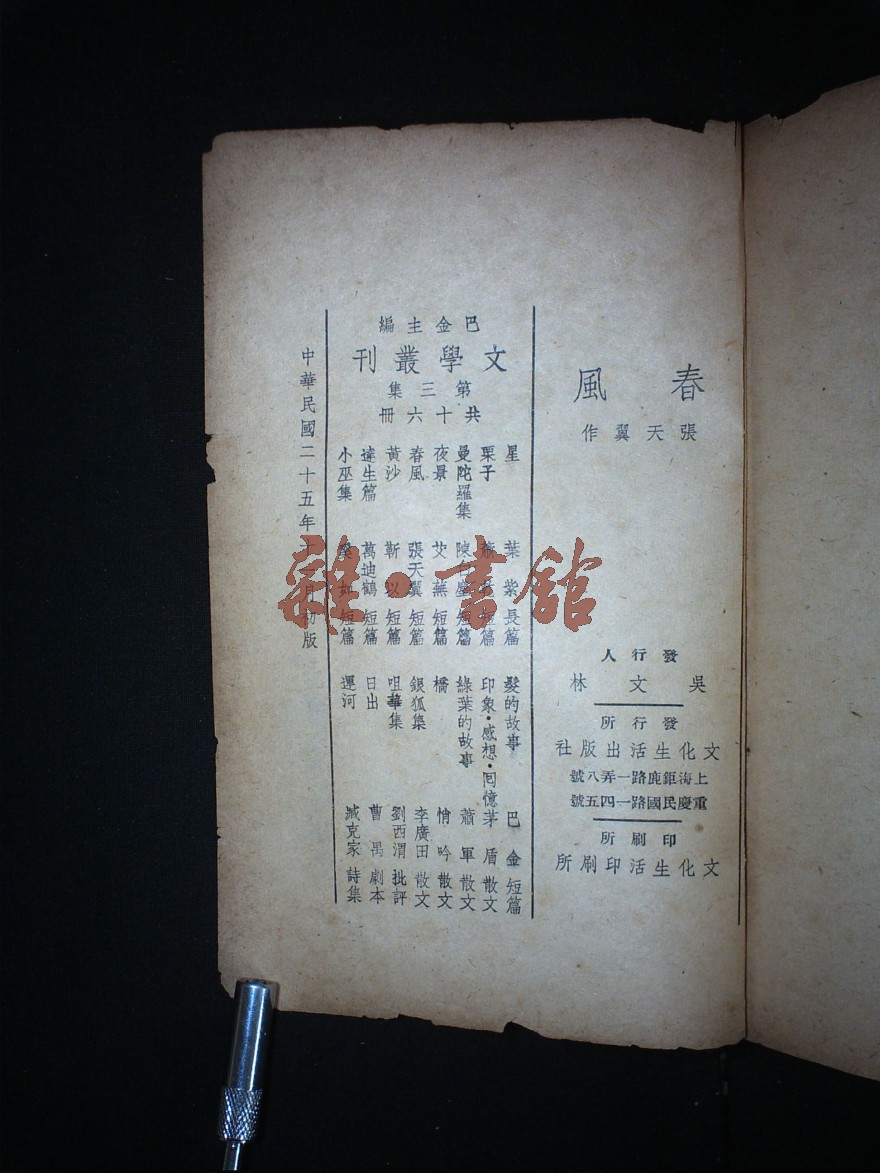 春風
張天翼作
發行人
吳文林
發行所
文化生活出版社
上海鉅鹿路一弄八號
重慶民國路一四五號
印刷所
文化生活印刷所
巴金主編
文學叢刊
第三集
共十六冊
星 葉紫 長篇
栗子 短篇
曼陀羅集 陳白塵 短篇
夜景 艾蕪 短篇
春風 張天翼 短篇
黃沙 靳以 短篇
達生篇 萬迪鶴 短篇
小巫集 奚如 短篇
髮的故事 巴金 短篇
印象・感想・囘憶 茅盾 散文
綠葉的故事 蕭軍 散文
橋 悄吟 散文
銀狐集 李廣田 散文
咀華集 劉西渭 批評
日出 曹禺 劇本
運河 臧克家 詩集
中華民國二十五年十月初版
雜・書館